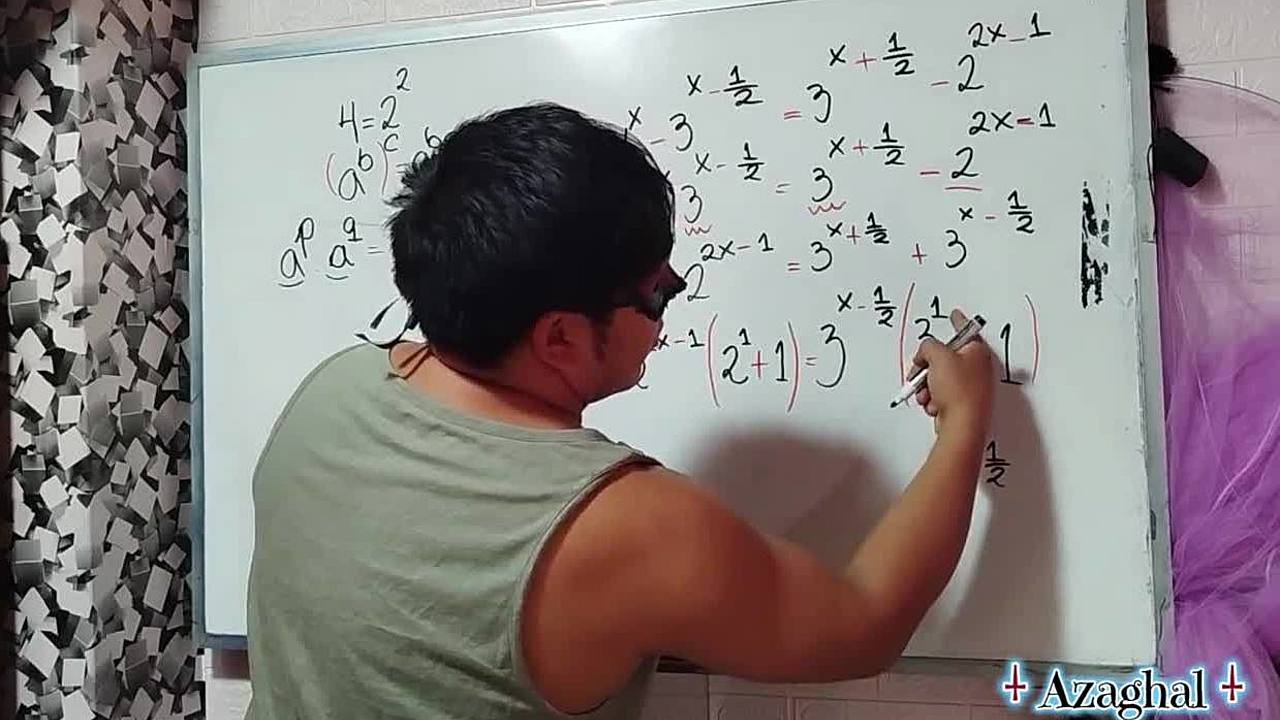 4=2^2
(a^b)^c = a^b
a^p a^q =
^x - 3^{x - 1/2} = 3^{x + 1/2} - 2^{2x - 1}
3^{x - 1/2} = 3^{x + 1/2} - 2^{2x - 1}
2^{2x - 1} = 3^{x + 1/2} + 3^{x - 1/2}
^{x-1} (2^1 + 1) = 3^{x - 1/2} ( ^1 1)
1/2
Azaghal